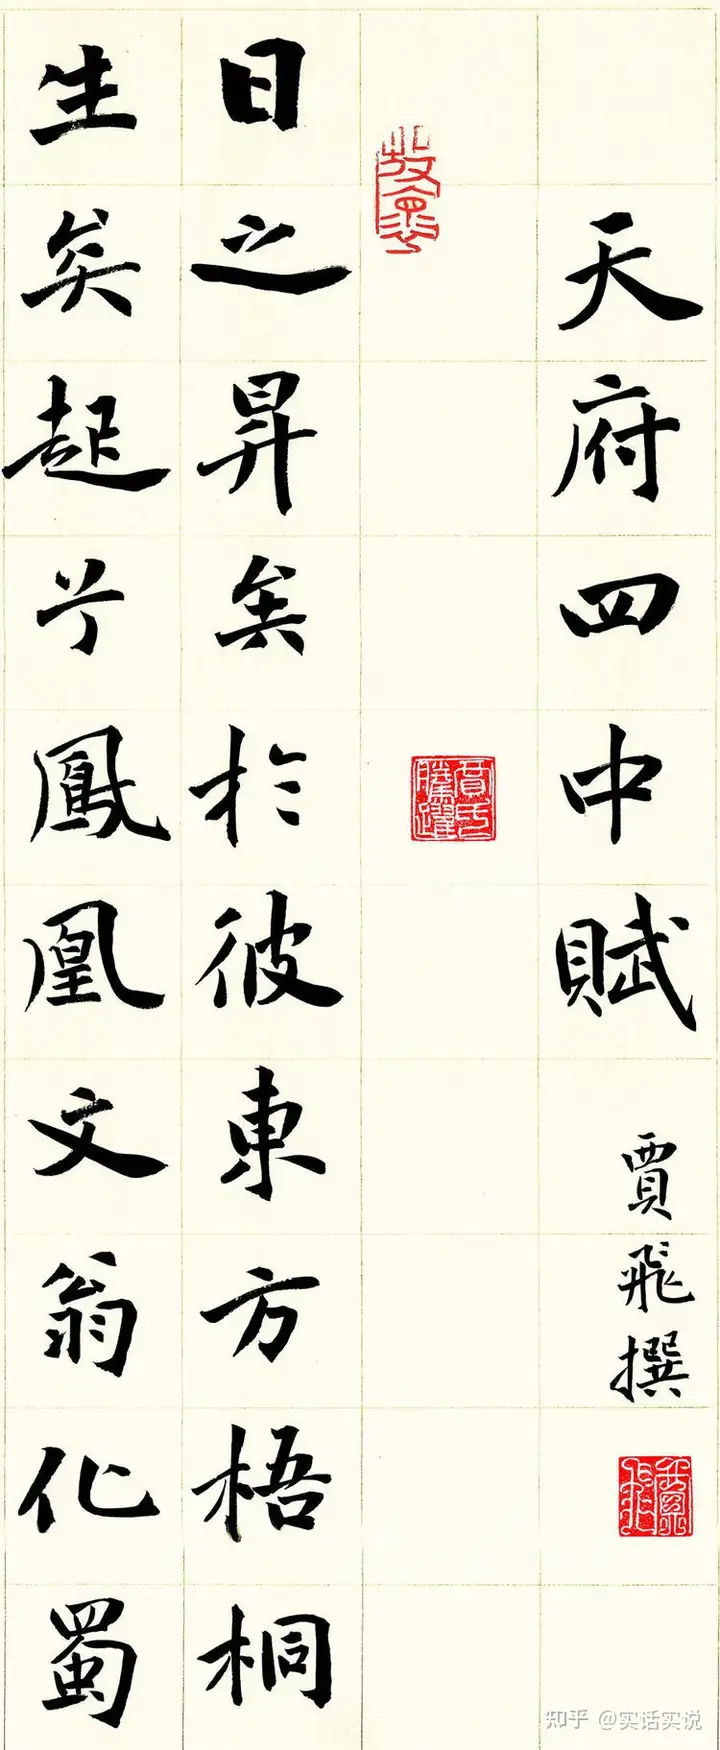 天府四中賦
賈飛撰
日之昇矣於彼東方梧桐
生矣起兮鳳凰文翁化蜀
知乎 @实话实说